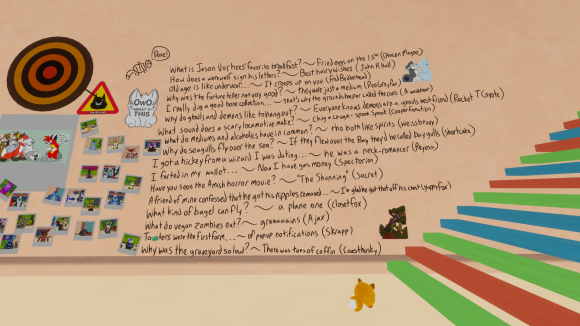 Pone!
What is Jason Vorhees' favorite breakfast? ~ Fried eggs on the 13th
How does a werewolf sign his letters? ~ Best hairy wishes (John R. Wolf)
Old age is like underwear... ~ It creeps up on you
Why was the fortune teller not very good? ~ They were just a medium
I really dig a good bone collection... ~ that's why the groundskeeper called the cops
Why do ghouls and demons like to hang out? ~ Everyone knows demons are a ghouls best friend (Rocket T Coyote)
What sound does a scary locomotive make? ~ Choo a Chooga - spook spook
What do mediums and alcoholics have in common? ~ rho both like spirits
Why do seagulls fly over the sea? ~ If they flew over the Bay they'd be called bay gulls
I got a hickey from a wizard I was dating... ~ he was a neck-romancer
I farted in my wallet... ~ Now I have gas money
Have you seen the Amish horror movie? ~ "The Shunning" (Socret)
A friend of mine confessed that he got his nipples removed... ~ I'm glad he got that off his chest
What kind of bagel can fly? ~ a plane one (closetfox)
What do vegan zombies eat? ~ graaaaains (Ajax)
Toasters were the first form... ~ of popup notifications (Skrapp)
Why was the graveyard so loud? ~ There was tons of coffin
OwO
THIS